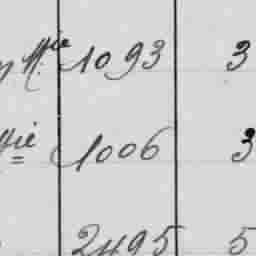 Mie 1093 3
gie 1006 3
2495 5